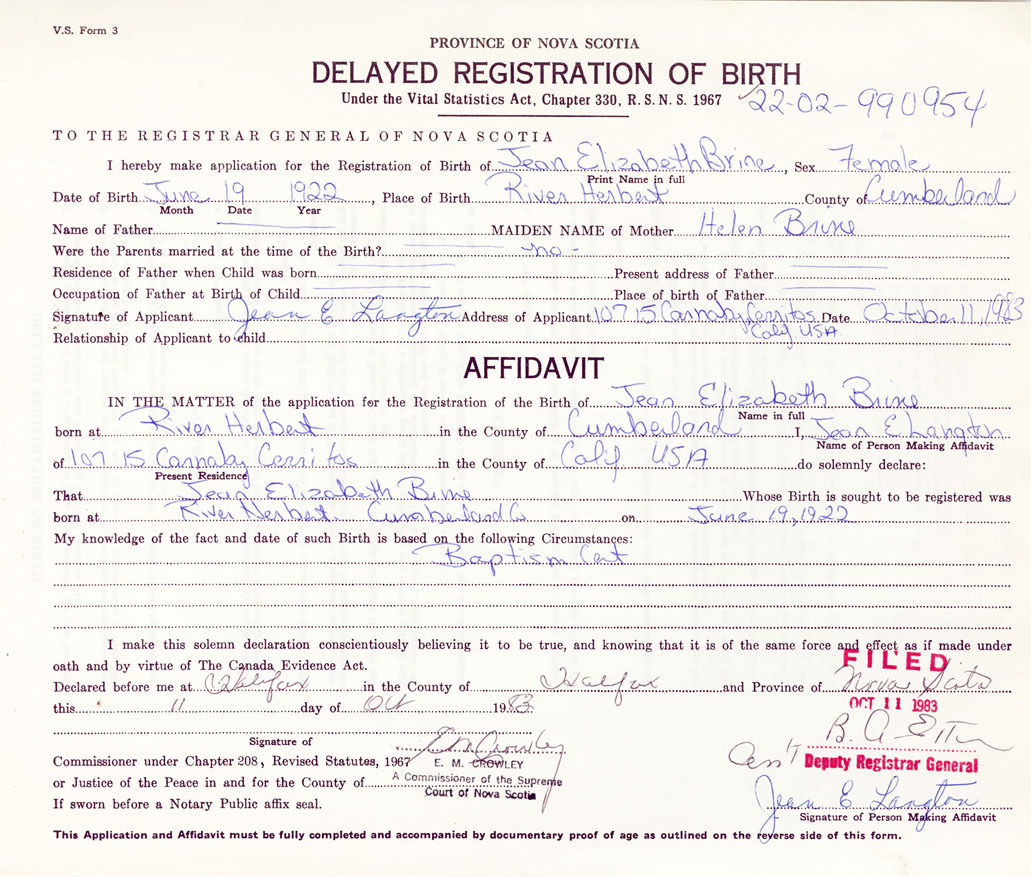 V.S. Form 3
PROVINCE OF NOVA SCOTIA
DELAYED REGISTRATION OF BIRTH
Under the Vital Statistics Act, Chapter 330, R.S.N.S. 1967 22-02-990954
TO THE REGISTRAR GENERAL OF NOVA SCOTIA
I hereby make application for the Registration of Birth of Jean Elizabeth Brine, Sex Female
Print Name in full
Date of Birth June 19 1922, Place of Birth River Herbert County of Cumberland
Month Date Year
Name of Father MAIDEN NAME of Mother Helen Brine
Were the Parents married at the time of the Birth? -no-
Residence of Father when Child was born Present address of Father
Occupation of Father at Birth of Child Place of birth of Father
Signature of Applicant Jean E Langton Address of Applicant 10715 Carnaby Cerritos Date October 11, 1983
Calif USA
Relationship of Applicant to child
AFFIDAVIT
IN THE MATTER of the application for the Registration of the Birth of Jean Elizabeth Brine
Name in full
born at River Herbert in the County of Cumberland I, Jean E Langton
Name of Person Making Affidavit
of 107 15 Carnaby Cerritos in the County of Calif USA do solemnly declare:
Present Residence
That Jean Elizabeth Brine Whose Birth is sought to be registered was
born at River Herbert Cumberland Co on June 19, 1922
My knowledge of the fact and date of such Birth is based on the following Circumstances:
Baptism Cert
I make this solemn declaration conscientiously believing it to be true, and knowing that it is of the same force and effect as if made under
oath and by virtue of The Canada Evidence Act.
FILED
Declared before me at Halifax in the County of Halifax and Province of Nova Scotia
this 11 day of Oct 1983
OCT 11 1983
Signature of
Commissioner under Chapter 208, Revised Statutes, 1967 E. M. CROWLEY
Deputy Registrar General
or Justice of the Peace in and for the County of A Commissioner of the Supreme
Court of Nova Scotia
Jean E Langton
If sworn before a Notary Public affix seal.
Signature of Person Making Affidavit
This Application and Affidavit must be fully completed and accompanied by documentary proof of age as outlined on the reverse side of this form.